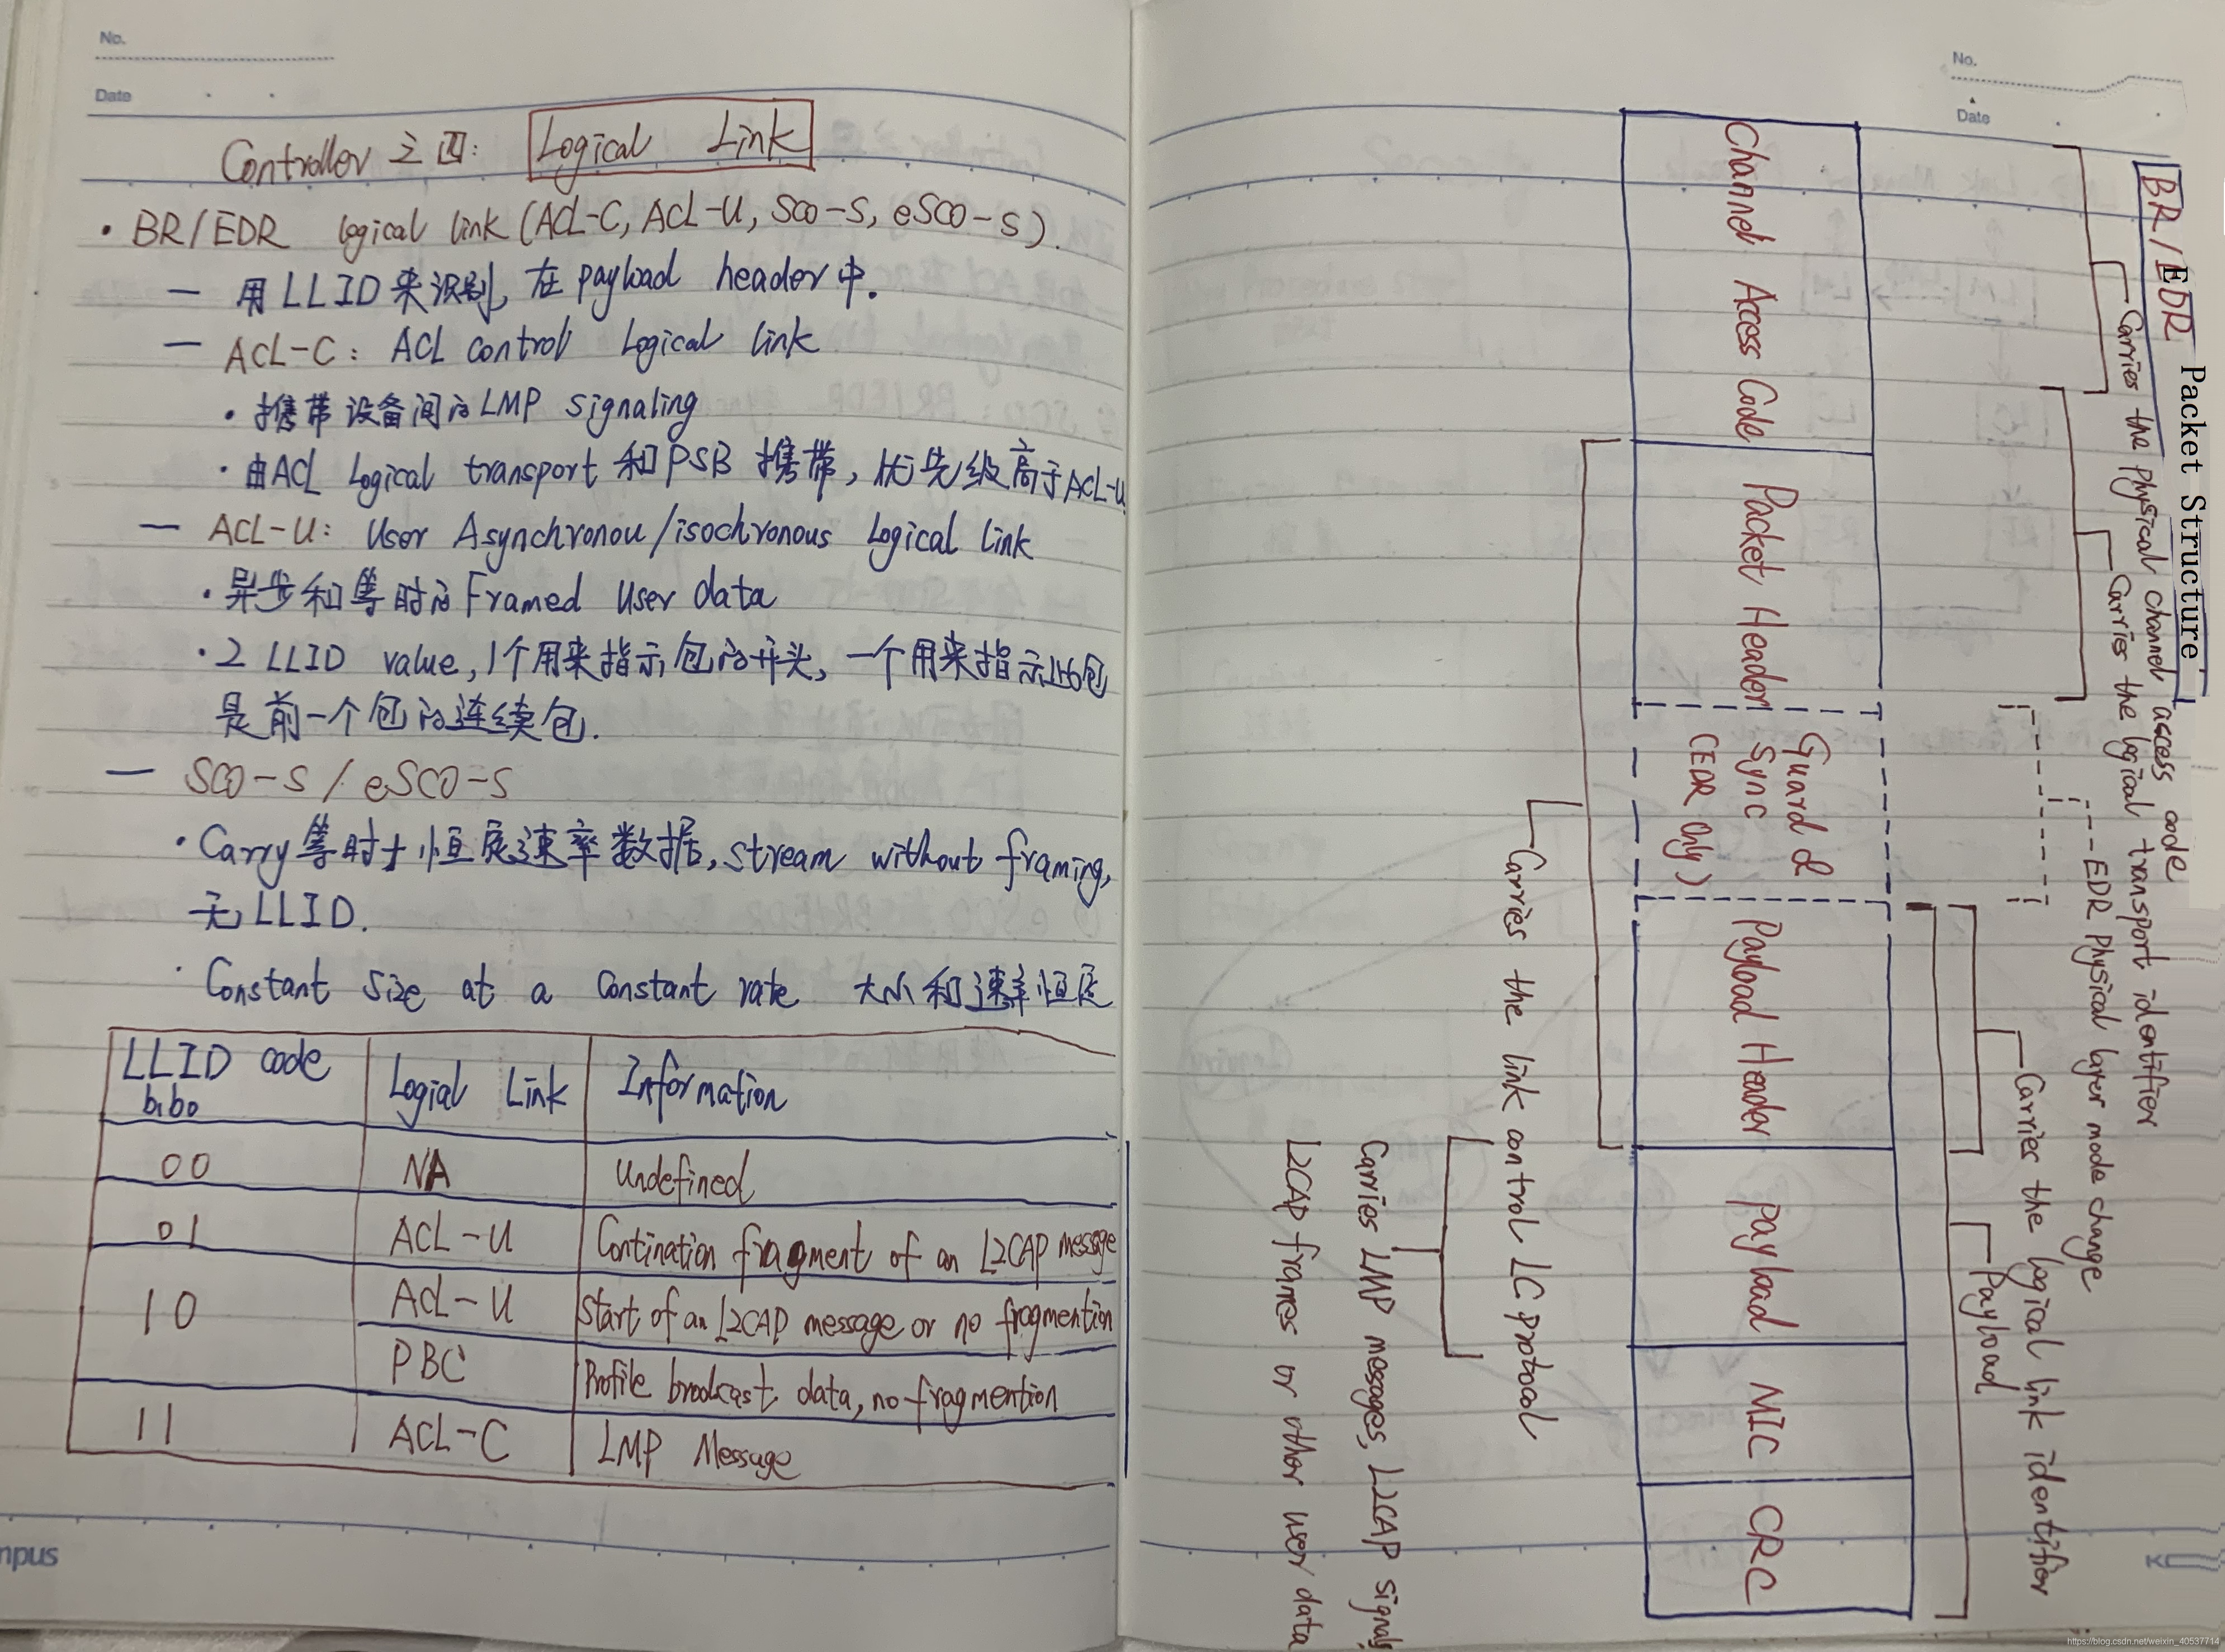 No.
Date
Controller 之四: Logical Link
· BR/EDR logical link (ACL-C, ACL-U, SCO-S, eSCO-S).
— 用LLID来识别, 在payload header中.
— ACL-C: ACL control Logical link
· 携带设备间的LMP signaling
· 由ACL Logical transport 和PSB携带, 优先级高于ACL-U
— ACL-U: User Asynchronou/isochronous Logical link
· 异步和等时的Framed User data
· 2 LLID value, 1个用来指示包的开头, 一个用来指示此包
是前一个包的连续包.
— SCO-S / eSCO-S
· Carry等时+恒定速率数据, stream without framing,
无LLID.
· Constant size at a constant rate 大小和速率恒定
LLID code b1b0 Logial Link Information
00 NA Undefined
01 ACL-U Contination fragment of an L2CAP message
10 ACL-U Start of an L2CAP message or no fragmention
PBC Profile brodcast data, no fragmention
11 ACL-C LMP Message
mpus
No.
Date
BR/EDR Packet Structure
Carries the physical channel access code
Carries the logical transport identifier
EDR Physical layer mode change
Carries the logical link identifier
Payload
Channel Access Code
Packet Header
Guard & Sync (EDR Only)
Payload Header
Payload
MIC
CRC
Carries the link control LC protocol
Carries LMP messages, L2CAP signals
L2CAP frames or other user data
https://blog.csdn.net/weixin_40537714